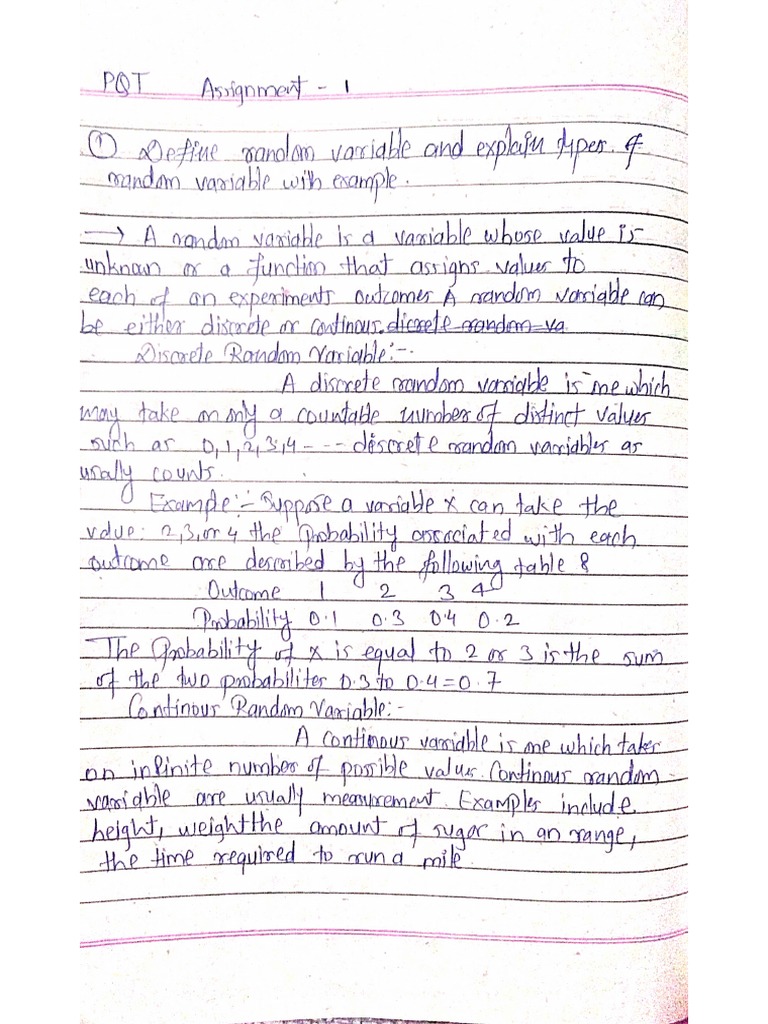 PQT Assignment - 1
① Define random variable and explain types of
random variable with example.
→ A random variable is a variable whose value is
unknown or a function that assigns values to
each of an experiments outcomes A random variable can
be either discrete or continous. dicrete random va
Discrete Random Variable:-
A discrete random variable is one which
may take on only a countable number of distinct values
such as 0,1,2,3,4 ---- discrete random variables as
usally counts.
Example:- Suppose a variable X can take the
value: 2,3, or 4 the Probability associated with each
outcome are described by the following table 8
Outcome 1 2 3 4
Probability 0.1 0.3 0.4 0.2
The Probability of X is equal to 2 or 3 is the sum
of the two probabilites 0.3 to 0.4 = 0.7
Continous Random Variable:-
A continous variable is one which takes
an infinite number of possible values. Continous random
variable are usually measurement. Examples include
height, weight the amount of sugar in an range,
the time required to run a mile.